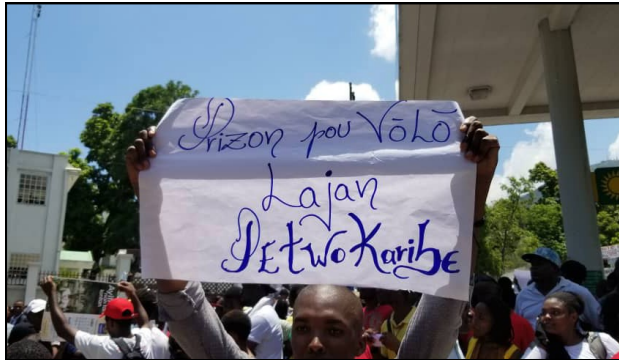 Prizon pou VōLō
Lajan
PEtwoKaribE